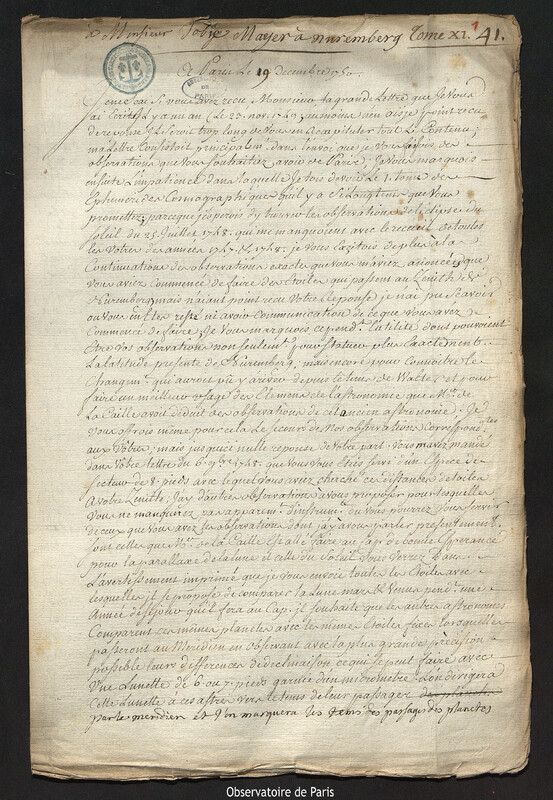 à Monsieur Tobie Mayer à Nuremberg Tome XI. 41.
A Paris le 19 Decembre 1750.
Je ne sai si vous avez recu Monsieur la grande Lettre que Je Vous
ai écrite il y a un an (le 20. nov. 1749) au moins n'en ai je point recu
de reponse. Il seroit trop long de vous en recapituler tout le Contenu;
ma lettre Consistoit principalemt. dans l'envoi que je vous faisois des
observations que vous souhaitiez avoir de Paris; Je vous marquois
ensuite l'impatience dans laquelle Je suis de voir le 1. tome des
Ephemerides Cosmographiques qu'il y a si longtems que Vous
promettez; parceque j'esperois d'y trouver les observations de l'eclipse du
Soleil du 25. Juillet 1748. qui me manquoient avec le recueil de toutes
les Votres des années 1747. & 1748. je vous excitois de plus à la
Continuation des observations exactes que vous m'aviez annoncé que
vous aviez Commencé de faire des Etoiles qui passent au Zenith de
Nuremberg mais n'aiant point recu Votre reponse je n'ai pu scavoir
ou vous en etes resté ni avoir communication de ce que vous avez
Commencé de faire; Je vous marquois cependt. l'utilité dont pouvoient
Etre vos observations non seulemt. pour statuer plus exactement
La latitude presente de Nuremberg, mais encore pour Connoitre le
changemt. qui auroit pû y arriver depuis le tems de Walter, et pour
faire un meilleur usage des Elemens de l'astronomie que Mr. de
La Caille avoit déduit des observations de cet ancien astronome; Je
vous offrois même pour cela le secours de Nos observations correspondantes
aux Votres; mais jusqu'ici nulle reponse de votre part. Vous m'avez mandé
dans Votre lettre du 6. 1748. que vous vous etes servi d'un Espece de
secteur de 8. pieds avec lequel vous aviez cherché les distances des etoiles
à votre Zenith; J'ay d'autres observations à vous proposer pour lesquelles
Vous ne manquerez pas apparemt. d'instrumt. où vous pourrez vous servir
de ceux que vous avez; les observations dont j'ay à vous parler presentement
sont celles que Mr. de la Caille est allé faire au Cap de bonne Esperance
pour la parallaxe de la lune et celle du Soleil. Vous verrez dans
L'avertissement imprimé que je vous envoie toutes les Etoiles avec
lesquelles il se propose de comparer la Lune mars & Venus pendt. une
Année de sejour qu'il fera au Cap. il souhaite que les autres astronomes
Comparent ces mêmes planetes avec les mêmes Etoiles fixes lorsquelles
passeront au Meridien en observant avec la plus grande précision
possible leurs differences de declinaison ce qui se peut faire avec
Une Lunette de 6. ou 7. pieds garnie d'un micrometre. L'on dirigera
Cette Lunette à ces astres vers le tems de leur passage
par le meridien et l'on marquera les tems des passages des planetes
Observatoire de Paris